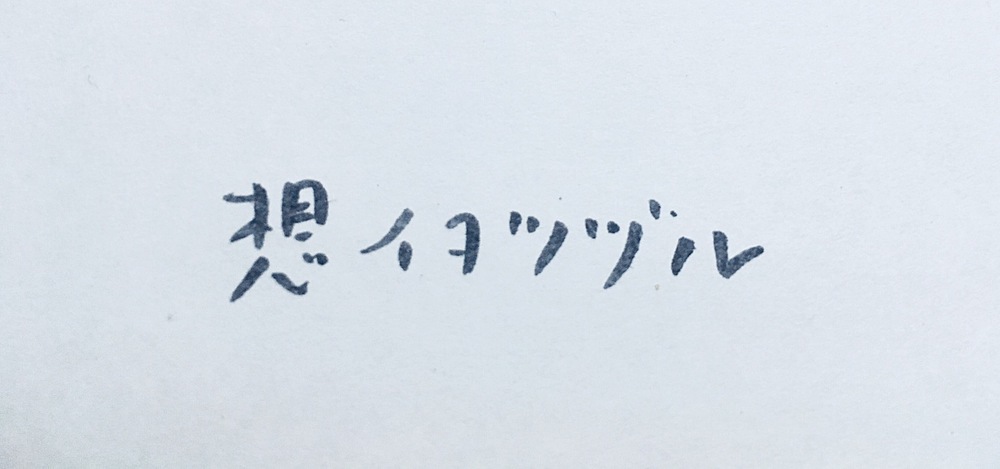 想イヲツヅル